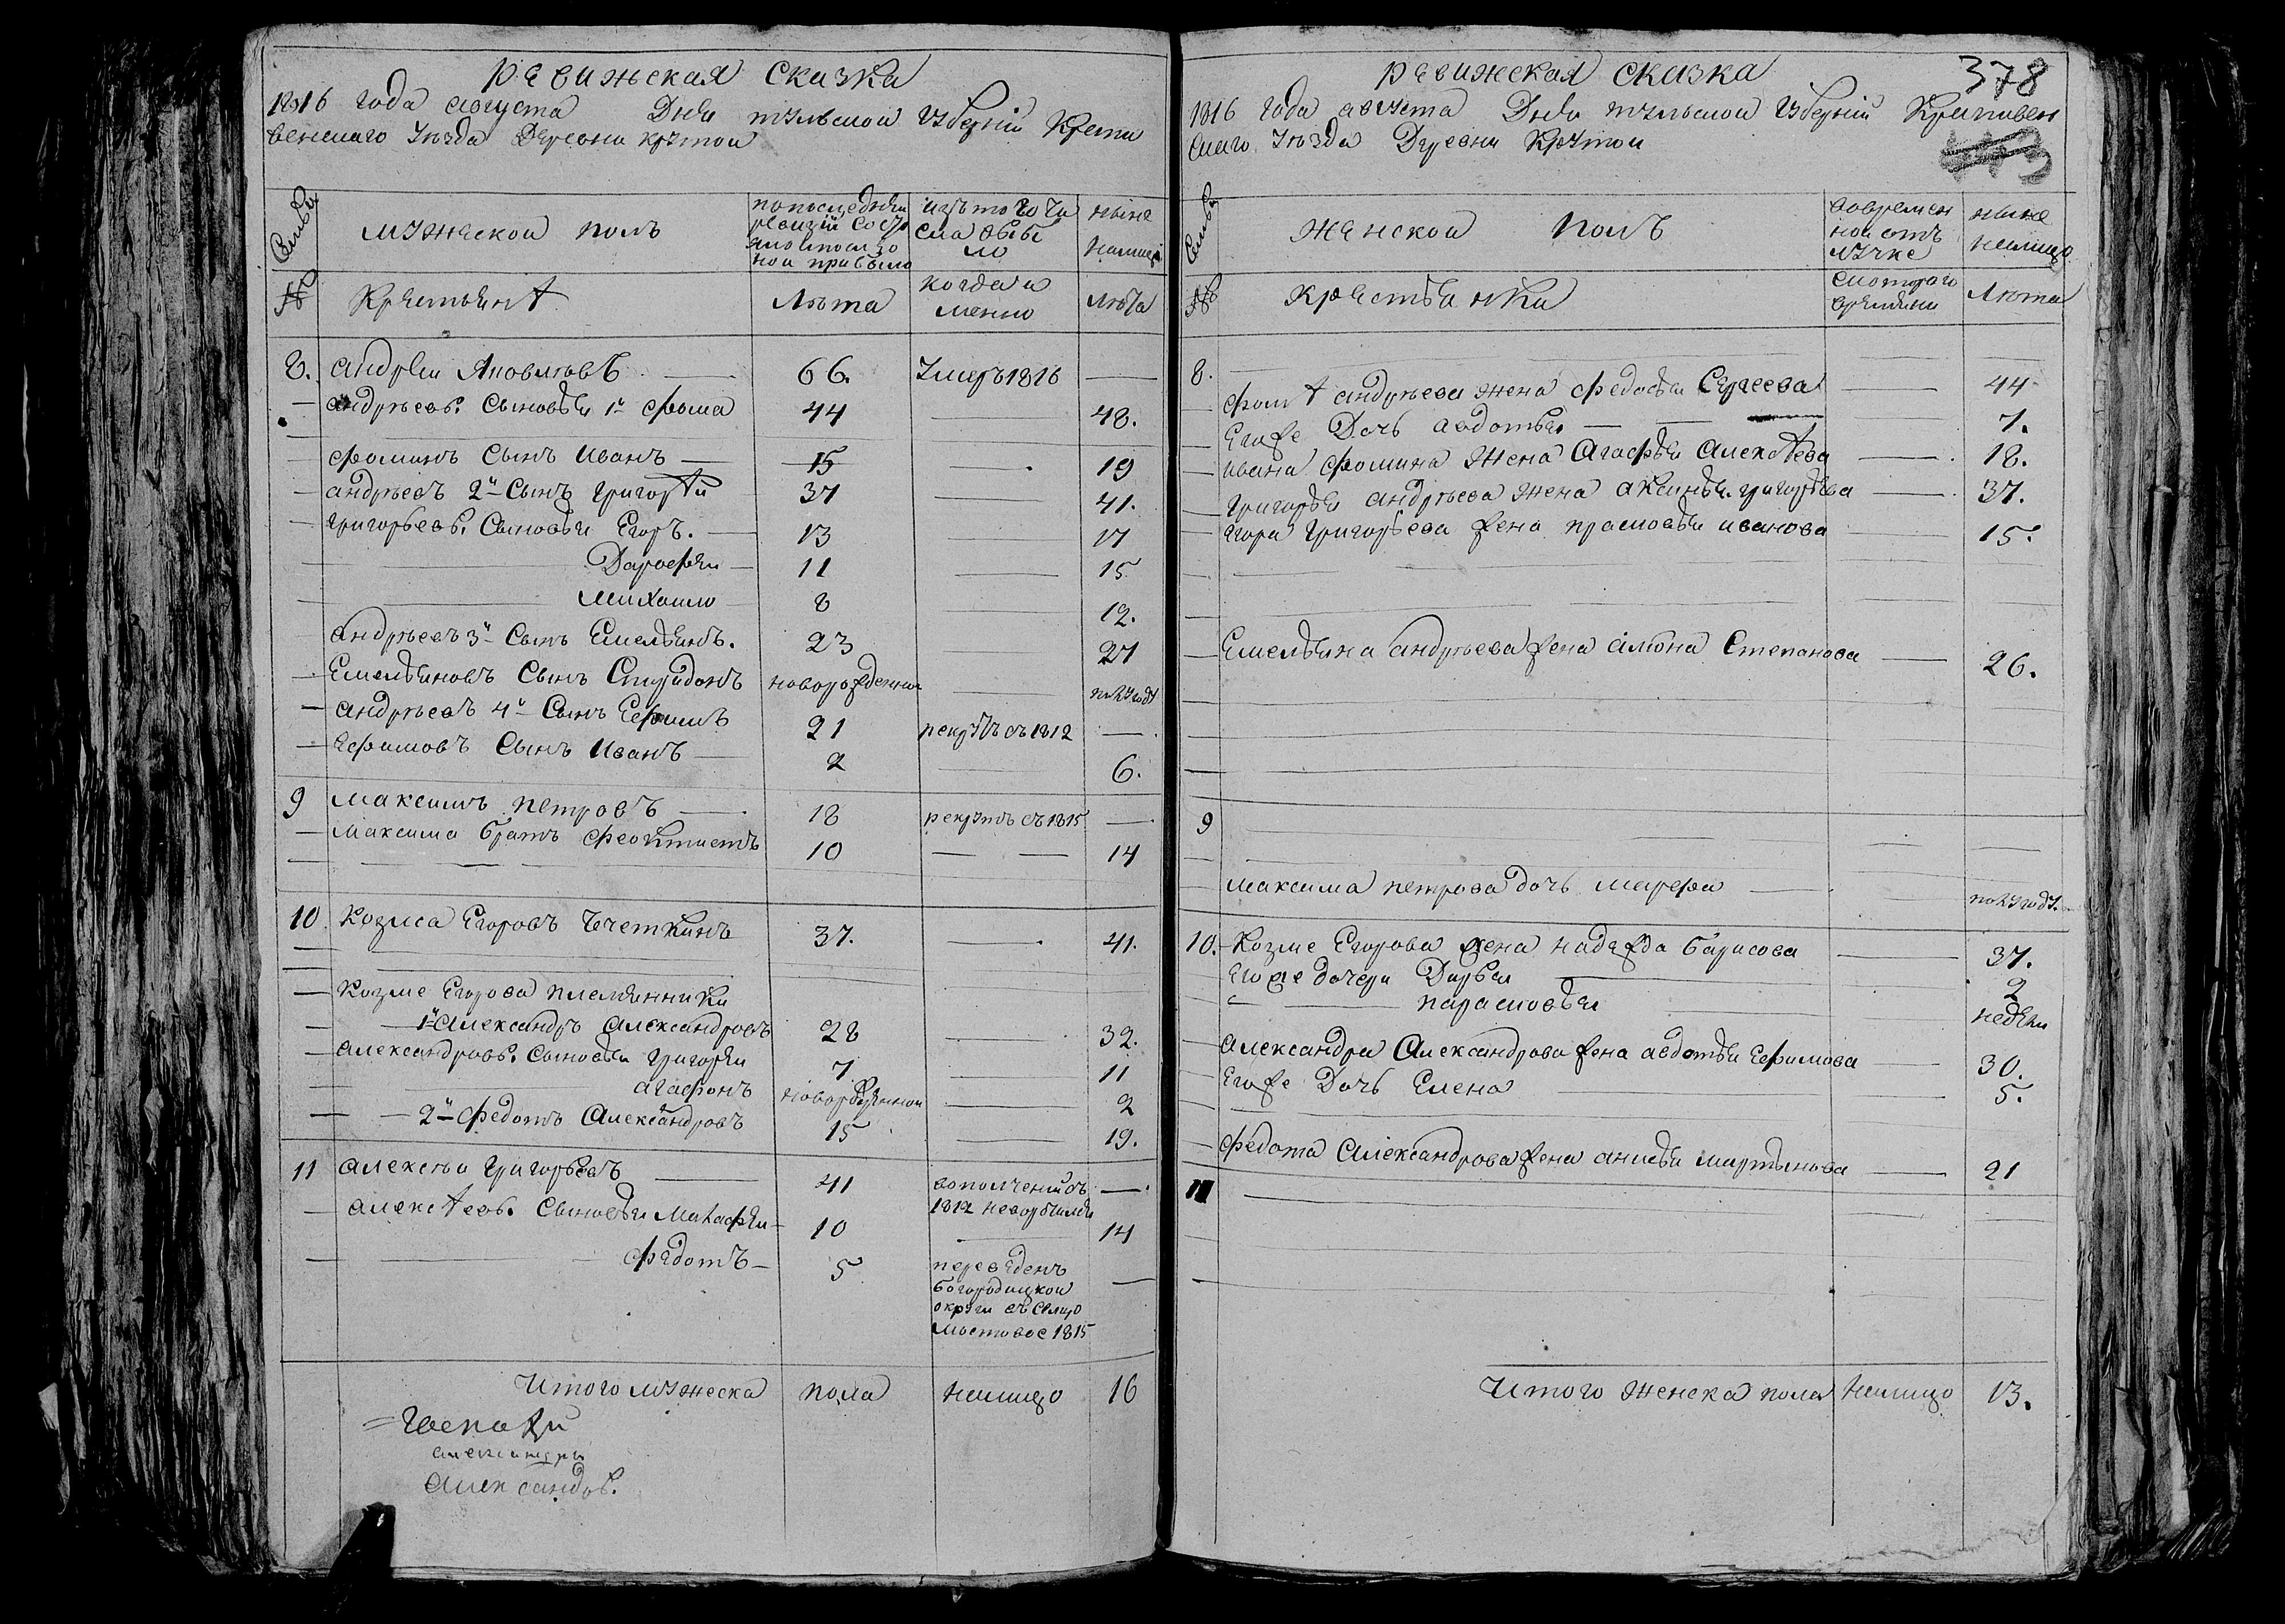 ревижская сказка
1816 года августа Дня тульской губерніи Крапи
венскаго уѣзда Деревни крутой
Семьи
мужеской полъ
попоследней
ревизіи состо
яло ипосле
оной прибыло
изъ того чи
сла выбы
ло
ныне
налицо
№
Крестьянѣ
Лѣта
когда и
менно
лѣта
8. андреи Яковлевъ 66. Умеръ 1816
андреевы Сыновьи 1й фома 44 48.
фоминъ Сынъ Иванъ 15 19
андреевъ 2й Сынъ григорѣи 37 41.
григорьевы Сыновьи Егоръ. 13 17
Дарофеи 11 15
михаило 8 12.
андреевъ 3й Сынъ Емельянъ. 23 27
Емельяновъ Сынъ Спиридонъ новорожденной полугоду
андреевъ 4й Сынъ Ефимъ 21 рекрутъ съ 1812
Ефимовъ Сынъ Иванъ 2 6.
9 максимъ петровъ 18 рекрутъ съ 1815
максима братъ феоктистъ 10 14
10. козма Егоровъ Четкинъ 37. 41.
козме Егорова племянники
1й Александръ Александровъ 28 32.
александровы Сыновьи григореи 7 11
агафонъ новорожденной 2
2й федотъ Александровъ 15 19.
11 алексеи григорьевъ 41 вополченіи съ
1812 невозвратился
алексѣевы Сыновьи макафеи 10 14
федотъ 5 переведенъ
богородицкой
округи въ Сельцо
мостовое 1815
Итого мужеска пола налицо 16
александръ
ревижская сказка
378
1816 года августа Дня тульской губерніи Крапивен
скаго уѣзда Деревни Крутой
Семьи
женской полъ
вовремен
ной отъ
лучке
ныне
налицо
№
крестьянки
скотораго
времени
Лѣта
8.
фомѣ андреева жена федосья Сергеева 44
Егоже Дочь авдотья 7.
ивана фомина жена Агафья Алексѣева 18.
григорья андреева жена аксинья григорьева 37.
Егора григорьева жена прасковья иванова 15.
Емельяна андреева жена алиона Степанова 26.
9
максима петрова дочь марфа полугоду.
10. Козме Егорова жена надежда барисова 37.
Егоже дочери Дарья 2
парасковья недели
александра Александрова жена авдотья Ефимова 30.
Егоже Дочь Елена 5.
федота Александрова жена анисья мартынова 21
11
Итого женска пола налицо 13.